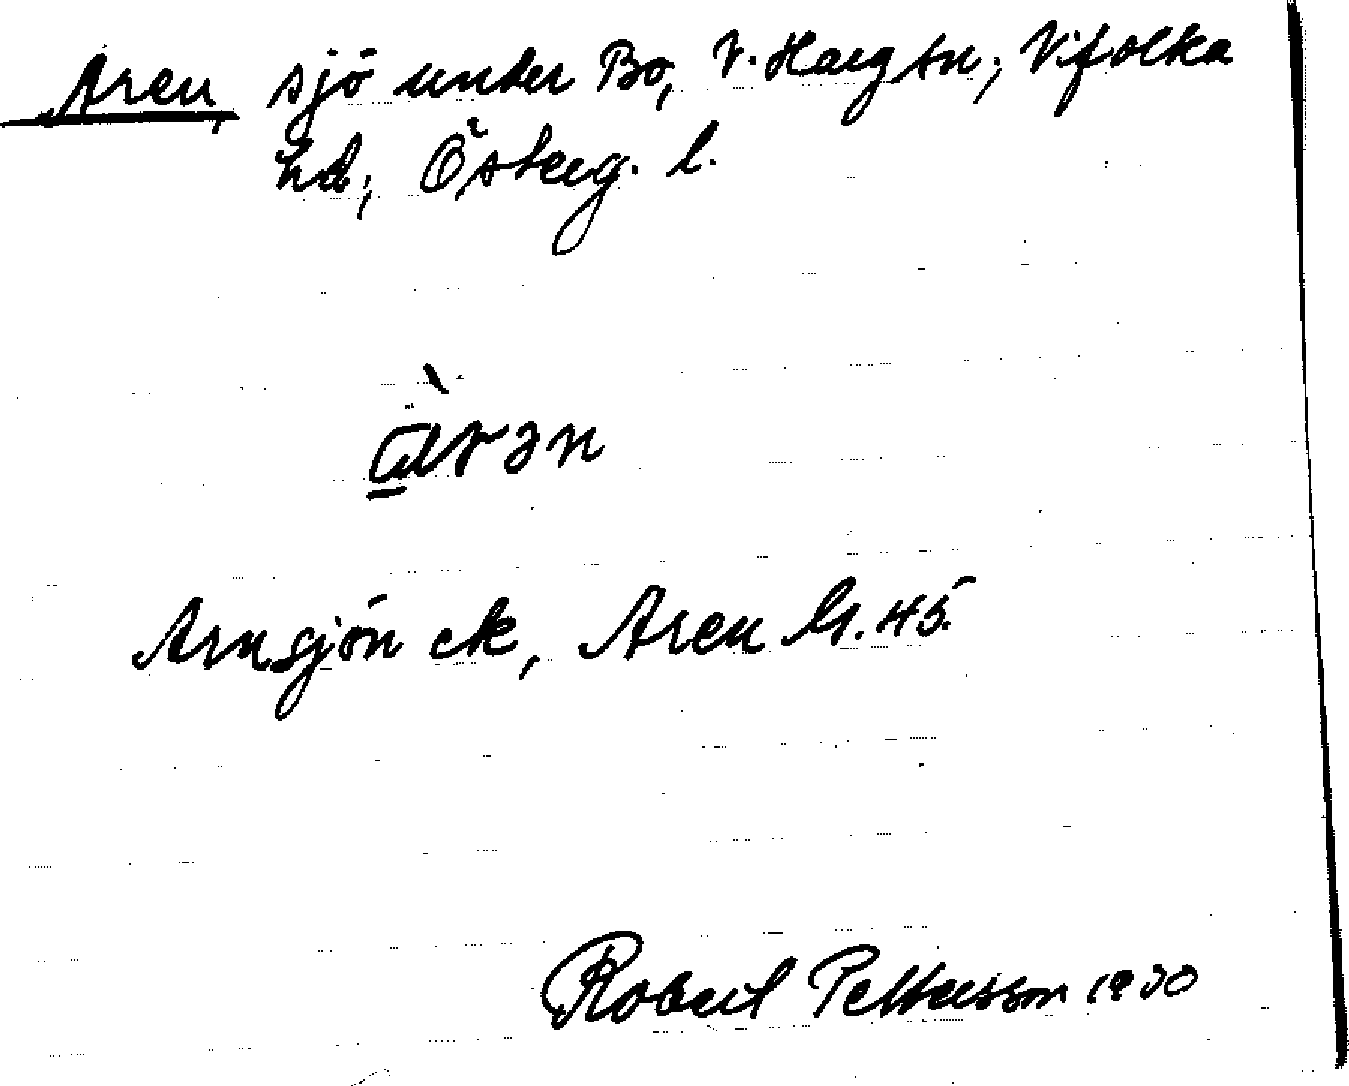 Aren, sjö under Bo, V. Harg sn; Vifolka
hd; Österg. l.
àrən
Arnsjön ek, Aren Gr. 45.
Robert Pettersson 1930